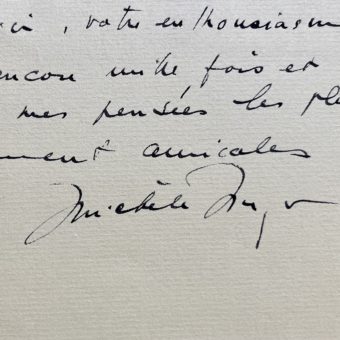 votre enthousiasm
encore mille fois et
mes pensées les pl
ment amicales
Michèle